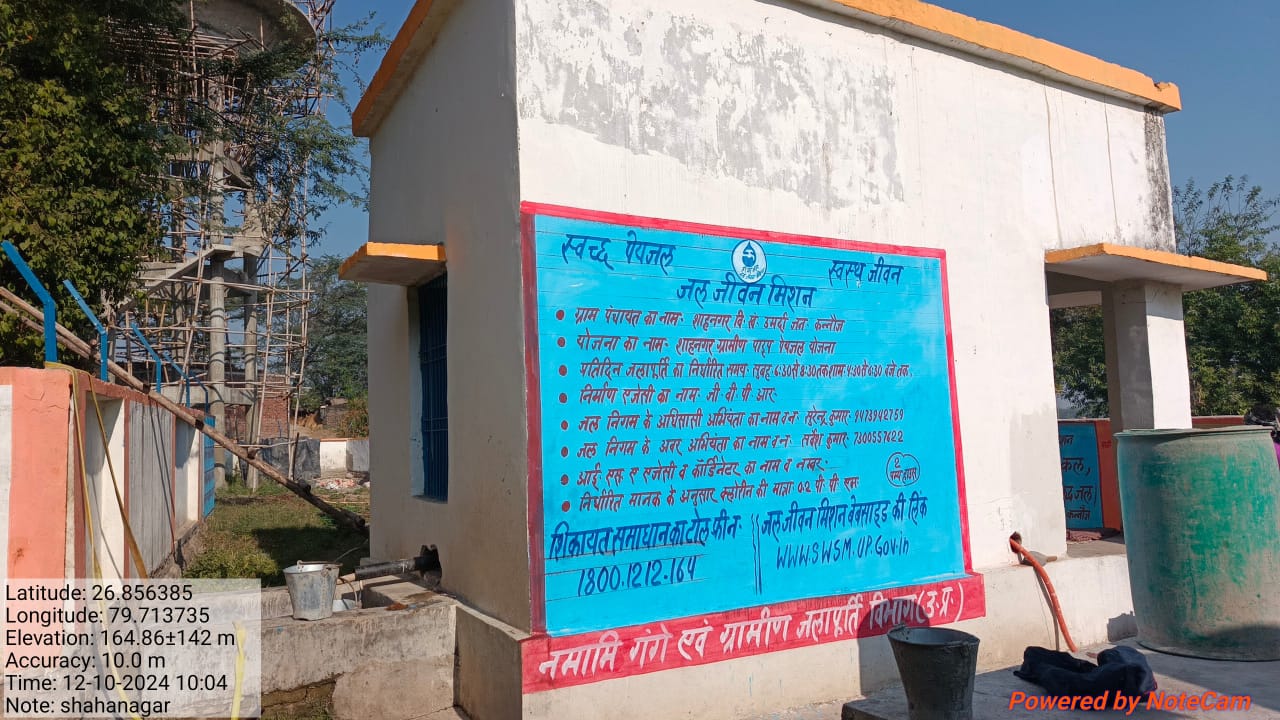 स्वच्छ पेयजल
स्वस्थ जीवन
जल जीवन मिशन
• ग्राम पंचायत का नाम- शाहनगर वि. खं. उमर्दा जन- कन्नौज
• योजना का नाम- शाहनगर ग्रामीण पाइप पेयजल योजना
• प्रतिदिन जलापूर्ति का निर्धारित समय- सुबह- 6:30 से 8:30 तक शाम- 4:30 से 6:30 बजे तक.
• निर्माण एजेंसी का नाम- जी वी पी आर-
• जल निगम के अधिसासी अभियंता का नाम व नं- सुरेन्द्र कुमार- 9473942759
• जल निगम के अवर अभियंता का नाम व नं- सर्वेश कुमार- 7300557422
• आई एस ए एजेंसी व कॉर्डिनेटर का नाम व नम्बर-
• निर्धारित मानक के अनुसार क्लोरीन की मात्रा- 0.2 पी पी एम-
2
पम्प हाउस
शिकायत समाधान का टोल फ्री नं-
1800.1212.164
जल जीवन मिशन वेबसाइड की लिंक
WWW.SWSM.UP.Gov.in
नमामि गंगे एवं ग्रामीण जलापूर्ति विभाग (उ.प्र.)
कन्नौज
Latitude: 26.856385
Longitude: 79.713735
Elevation: 164.86±142 m
Accuracy: 10.0 m
Time: 12-10-2024 10:04
Note: shahanagar
Powered by NoteCam